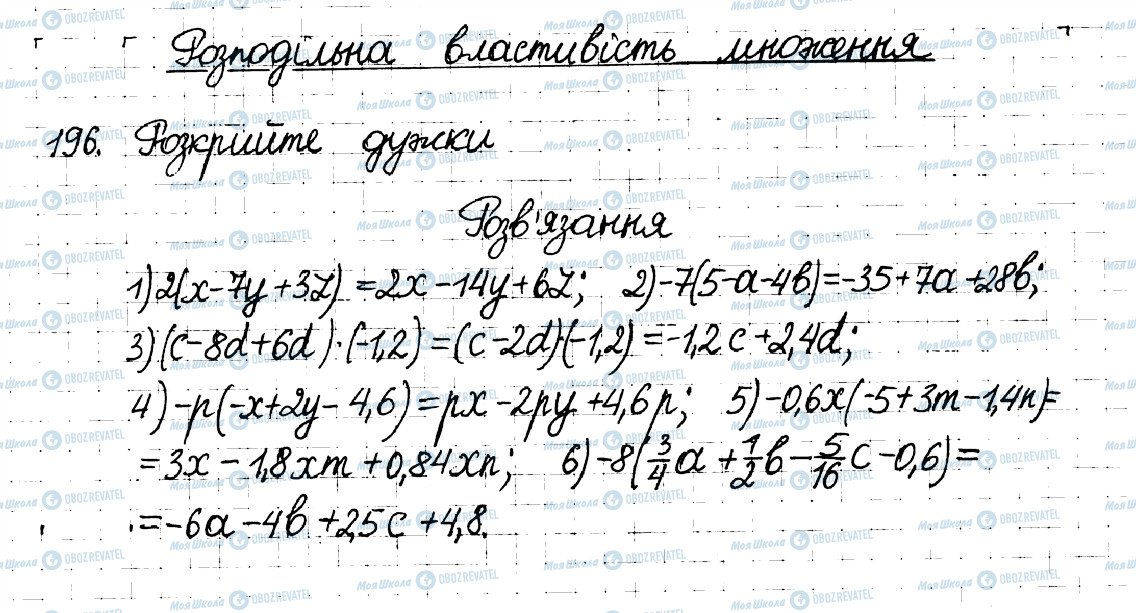 Розподільна властивість множення
196. Розкрийте дужки
Розв'язання
1) 2(x-7y+3z) = 2x-14y+6z; 2) -7(5-a-4b) = -35+7a+28b;
3) (c-8d+6d)·(-1,2) = (c-2d)·(-1,2) = -1,2c+2,4d;
4) -p(-x+2y-4,6) = px-2py+4,6p; 5) -0,6x(-5+3m-1,4n) =
= 3x-1,8xm+0,84xn; 6) -8(3/4a+1/2b-5/16c-0,6) =
= -6a-4b+2,5c+4,8.